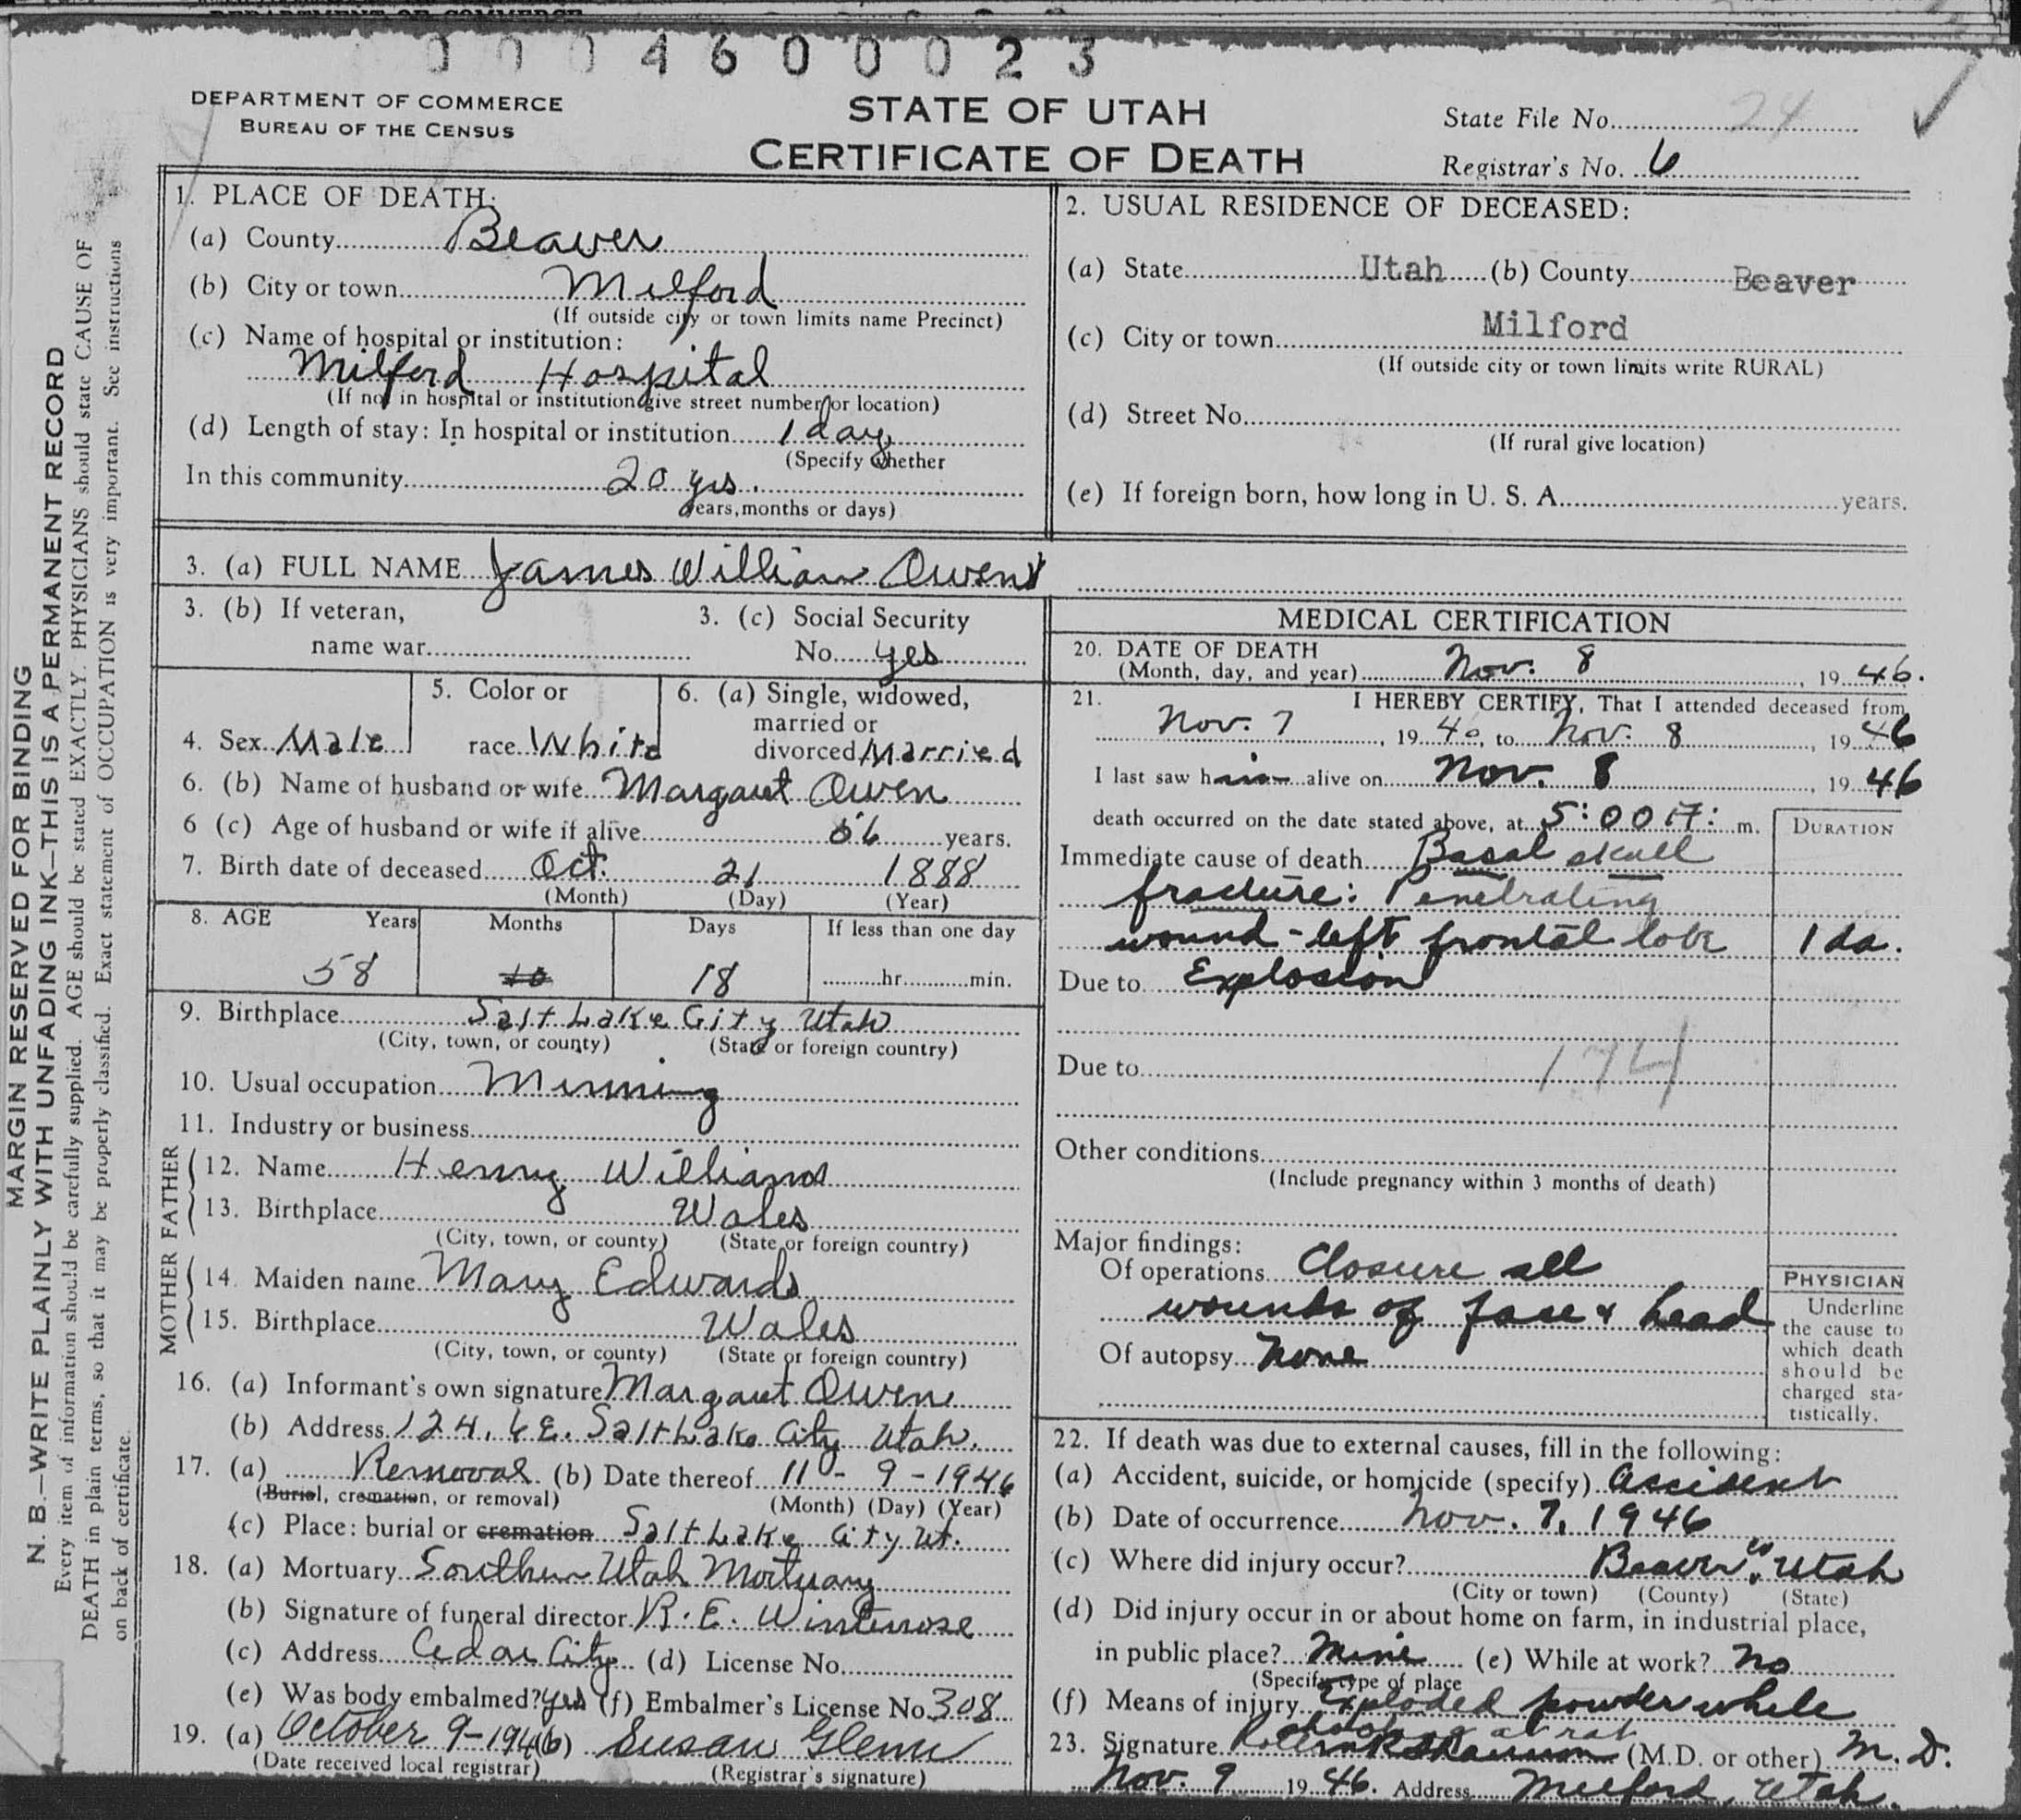 0 0 0 4 6 0 0 0 2 3
DEPARTMENT OF COMMERCE
BUREAU OF THE CENSUS
STATE OF UTAH
CERTIFICATE OF DEATH
State File No. 24
Registrar's No. 6
MARGIN RESERVED FOR BINDING
N. B.—WRITE PLAINLY WITH UNFADING INK—THIS IS A PERMANENT RECORD
Every item of information should be carefully supplied. AGE should be stated EXACTLY. PHYSICIANS should state CAUSE OF
DEATH in plain terms, so that it may be properly classified. Exact statement of OCCUPATION is very important. See instructions
on back of certificate.
1. PLACE OF DEATH:
(a) County Beaver
(b) City or town Milford
(If outside city or town limits name Precinct)
(c) Name of hospital or institution:
Milford Hospital
(If not in hospital or institution give street number or location)
(d) Length of stay: In hospital or institution 1 day
(Specify whether
In this community 20 yrs.
years, months or days)
2. USUAL RESIDENCE OF DECEASED:
(a) State Utah (b) County Beaver
(c) City or town Milford
(If outside city or town limits write RURAL)
(d) Street No.
(If rural give location)
(e) If foreign born, how long in U. S. A. years.
3. (a) FULL NAME James William Owens
3. (b) If veteran,
name war
3. (c) Social Security
No. yes
4. Sex Male
5. Color or
race White
6. (a) Single, widowed,
married or
divorced Married
6. (b) Name of husband or wife Margaret Owen
6 (c) Age of husband or wife if alive 56 years.
7. Birth date of deceased Oct. 21 1888
(Month) (Day) (Year)
8. AGE Years Months Days If less than one day
58 10 18 hr. min.
9. Birthplace Salt Lake City Utah
(City, town, or county) (State or foreign country)
10. Usual occupation Minning
11. Industry or business
FATHER
12. Name Henry Williams
13. Birthplace Wales
(City, town, or county) (State or foreign country)
MOTHER
14. Maiden name Mary Edwards
15. Birthplace Wales
(City, town, or county) (State or foreign country)
16. (a) Informant's own signature Margaret Owen
(b) Address 124, 6 E. Salt Lake City Utah.
17. (a) Removal (b) Date thereof 11 - 9 - 1946
(Burial, cremation, or removal) (Month) (Day) (Year)
(c) Place: burial or cremation Salt Lake City Ut.
18. (a) Mortuary Southern Utah Mortuary
(b) Signature of funeral director R. E. Winterrose
(c) Address Cedar City (d) License No.
(e) Was body embalmed? yes (f) Embalmer's License No. 308
19. (a) October 9-1946 (b) Susan Glenn
(Date received local registrar) (Registrar's signature)
MEDICAL CERTIFICATION
20. DATE OF DEATH
(Month, day, and year) Nov. 8, 1946.
21. I HEREBY CERTIFY, That I attended deceased from
Nov. 7, 19 to Nov. 8, 1946
I last saw him alive on Nov. 8, 1946
death occurred on the date stated above, at 5:00 m.
DURATION
Immediate cause of death Basal skull
fracture: Penetrating
wound - left frontal lobe 1 da.
Due to Explosion
Due to 174
Other conditions
(Include pregnancy within 3 months of death)
Major findings:
Of operations Closure all
wounds of face & head
Of autopsy None
PHYSICIAN
Underline
the cause to
which death
should be
charged sta-
tistically.
22. If death was due to external causes, fill in the following:
(a) Accident, suicide, or homicide (specify) Accident
(b) Date of occurrence Nov. 7, 1946
(c) Where did injury occur? Beaver Co. Utah
(City or town) (County) (State)
(d) Did injury occur in or about home on farm, in industrial place,
in public place? Mine (e) While at work? No
(Specify type of place
(f) Means of injury Exploded powder while
shooting at rat
23. Signature (M.D. or other) M. D.
Nov. 9 1946. Address Milford, Utah.